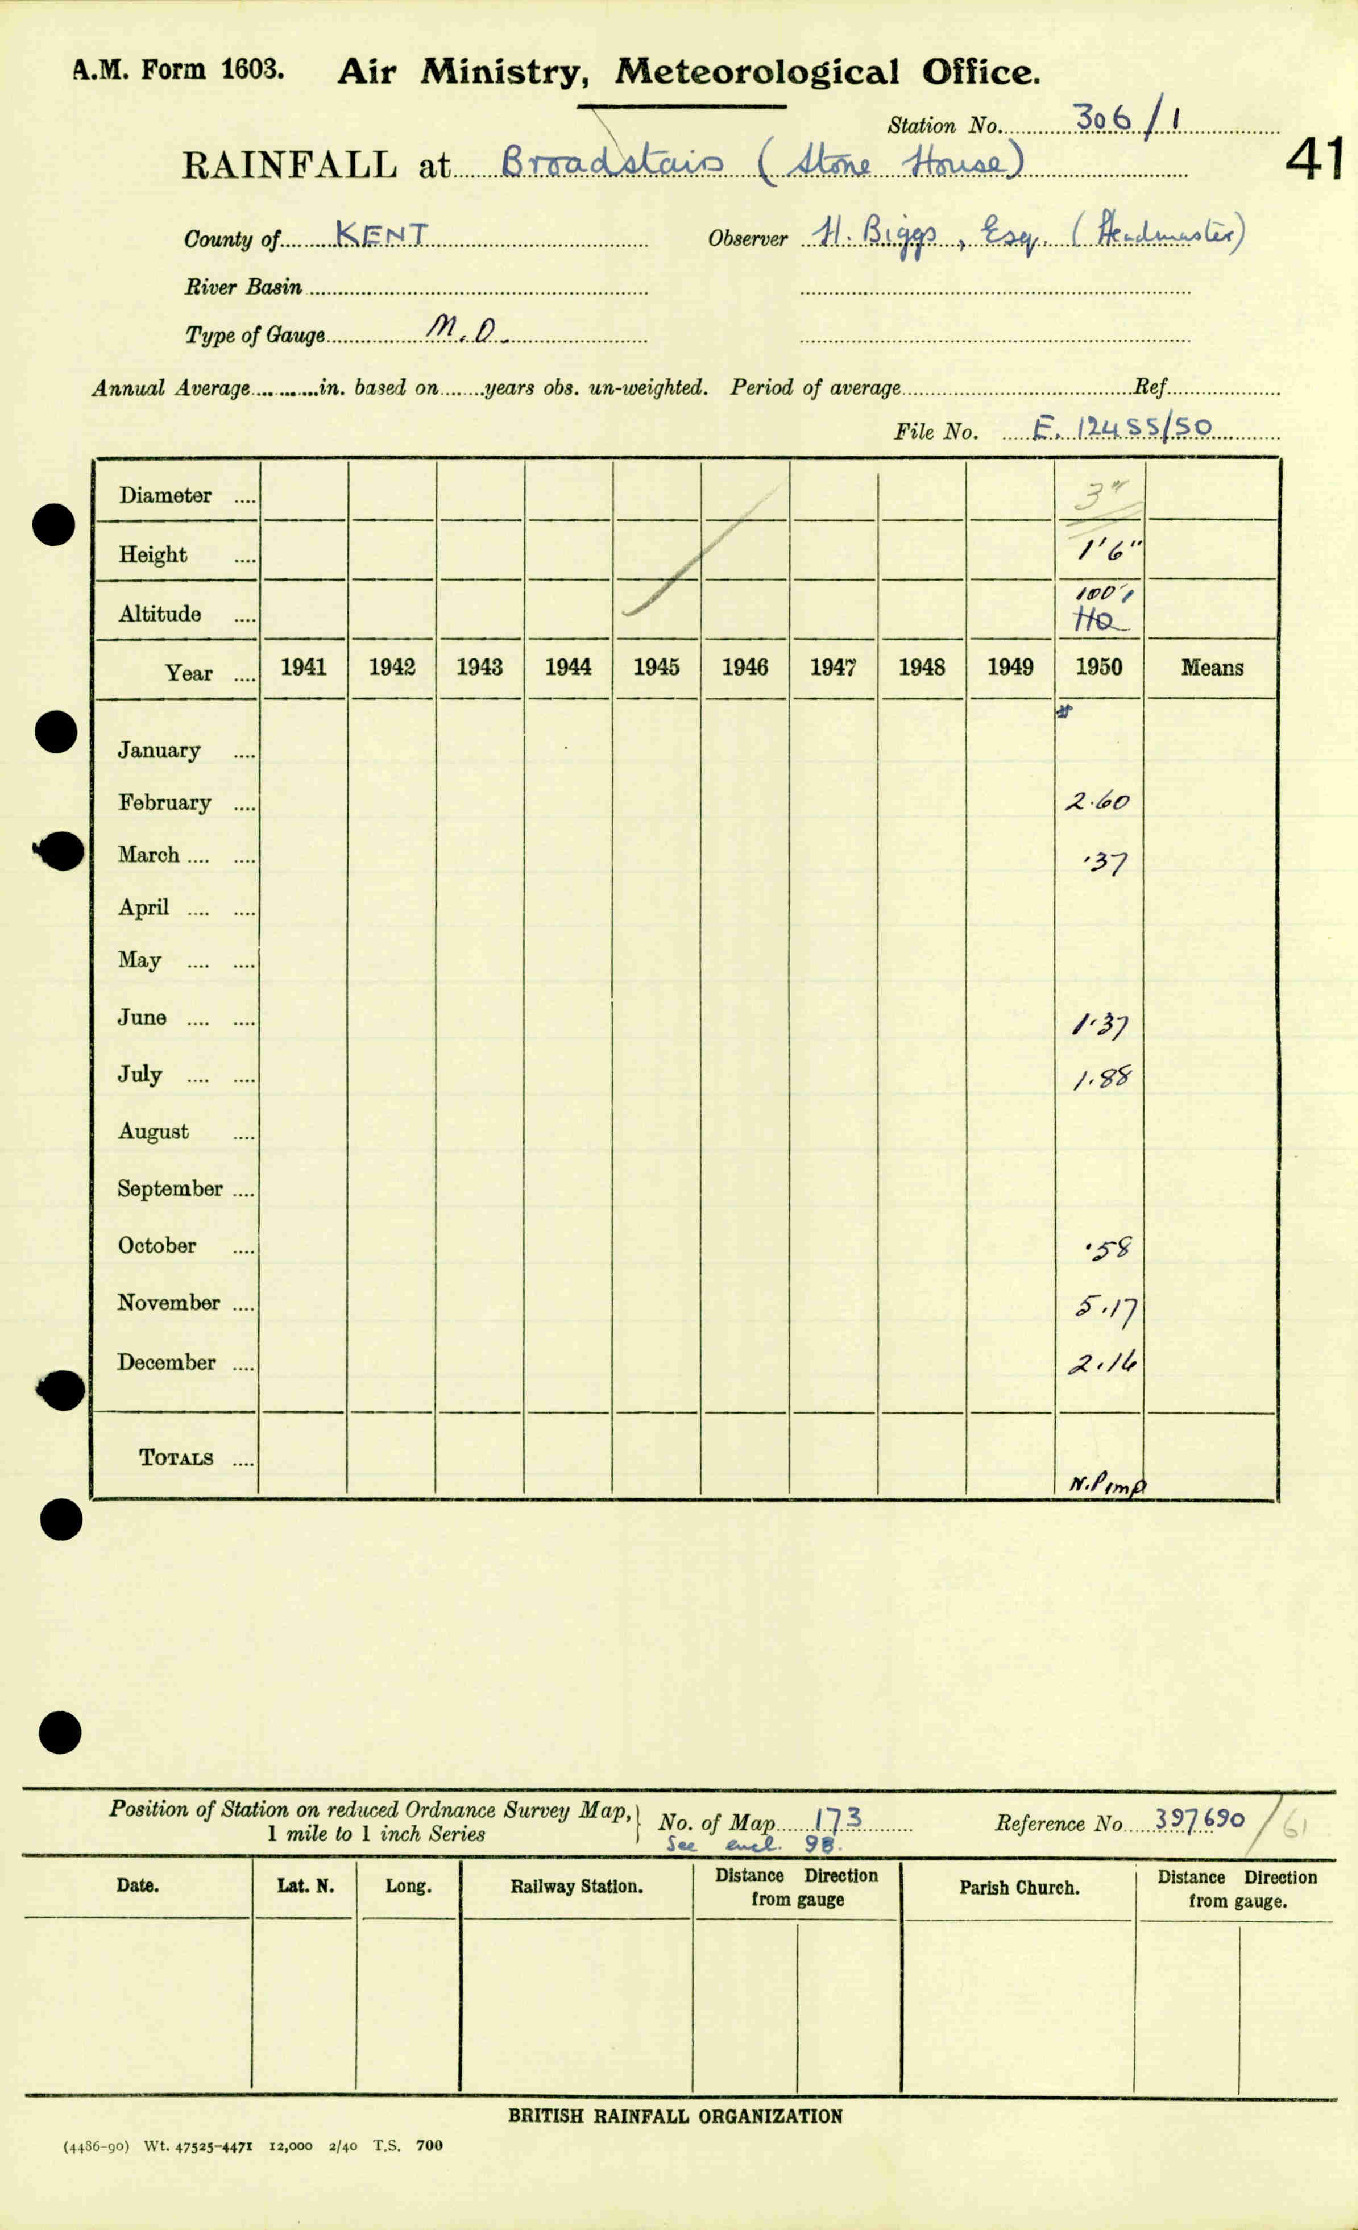 A.M. Form 1603. Air Ministry, Meteorological Office.
Station No. 306/1
RAINFALL at Broadstairs (Stone House)
41
County of KENT Observer H. Biggs, Esq. (Headmaster)
River Basin
Type of Gauge M.O.
Annual Average in. based on years obs. un-weighted. Period of average Ref.
File No. E. 12455/50
Diameter 3"
Height 1'6"
100'
Altitude
Year 1941 1942 1943 1944 1945 1946 1947 1948 1949 1950 Means
January
February 2.60
March .37
April
May
June 1.37
July 1.88
August
September
October .58
November 5.17
December 2.16
TOTALS
N.P. imp
Position of Station on reduced Ordnance Survey Map, No. of Map 173 Reference No. 397690/61
1 mile to 1 inch Series
See encl. 9B.
Date. Lat. N. Long. Railway Station. Distance Direction from gauge Parish Church. Distance Direction from gauge.
BRITISH RAINFALL ORGANIZATION
(4486-90) Wt. 47525-4471 12,000 2/40 T.S. 700